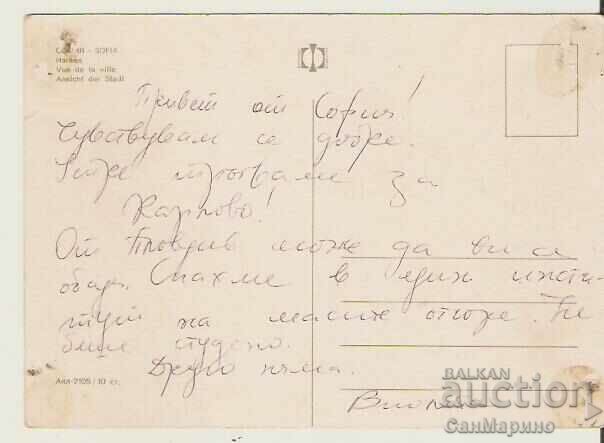 SOFIA
Изглед
Vue de la ville
Ansicht der Stadt
Привет от София!
Чувствувам се добре.
Утре тръгваме за
Карлово!
От Пловдив може да ви се
обадя. Спахме в един инсти-
тут на маси отгоре. Не
беше студено.
Друго няма.
Виолета
Акл-2105 / 10 ст.
БАЛКАН
auction
СанМарино